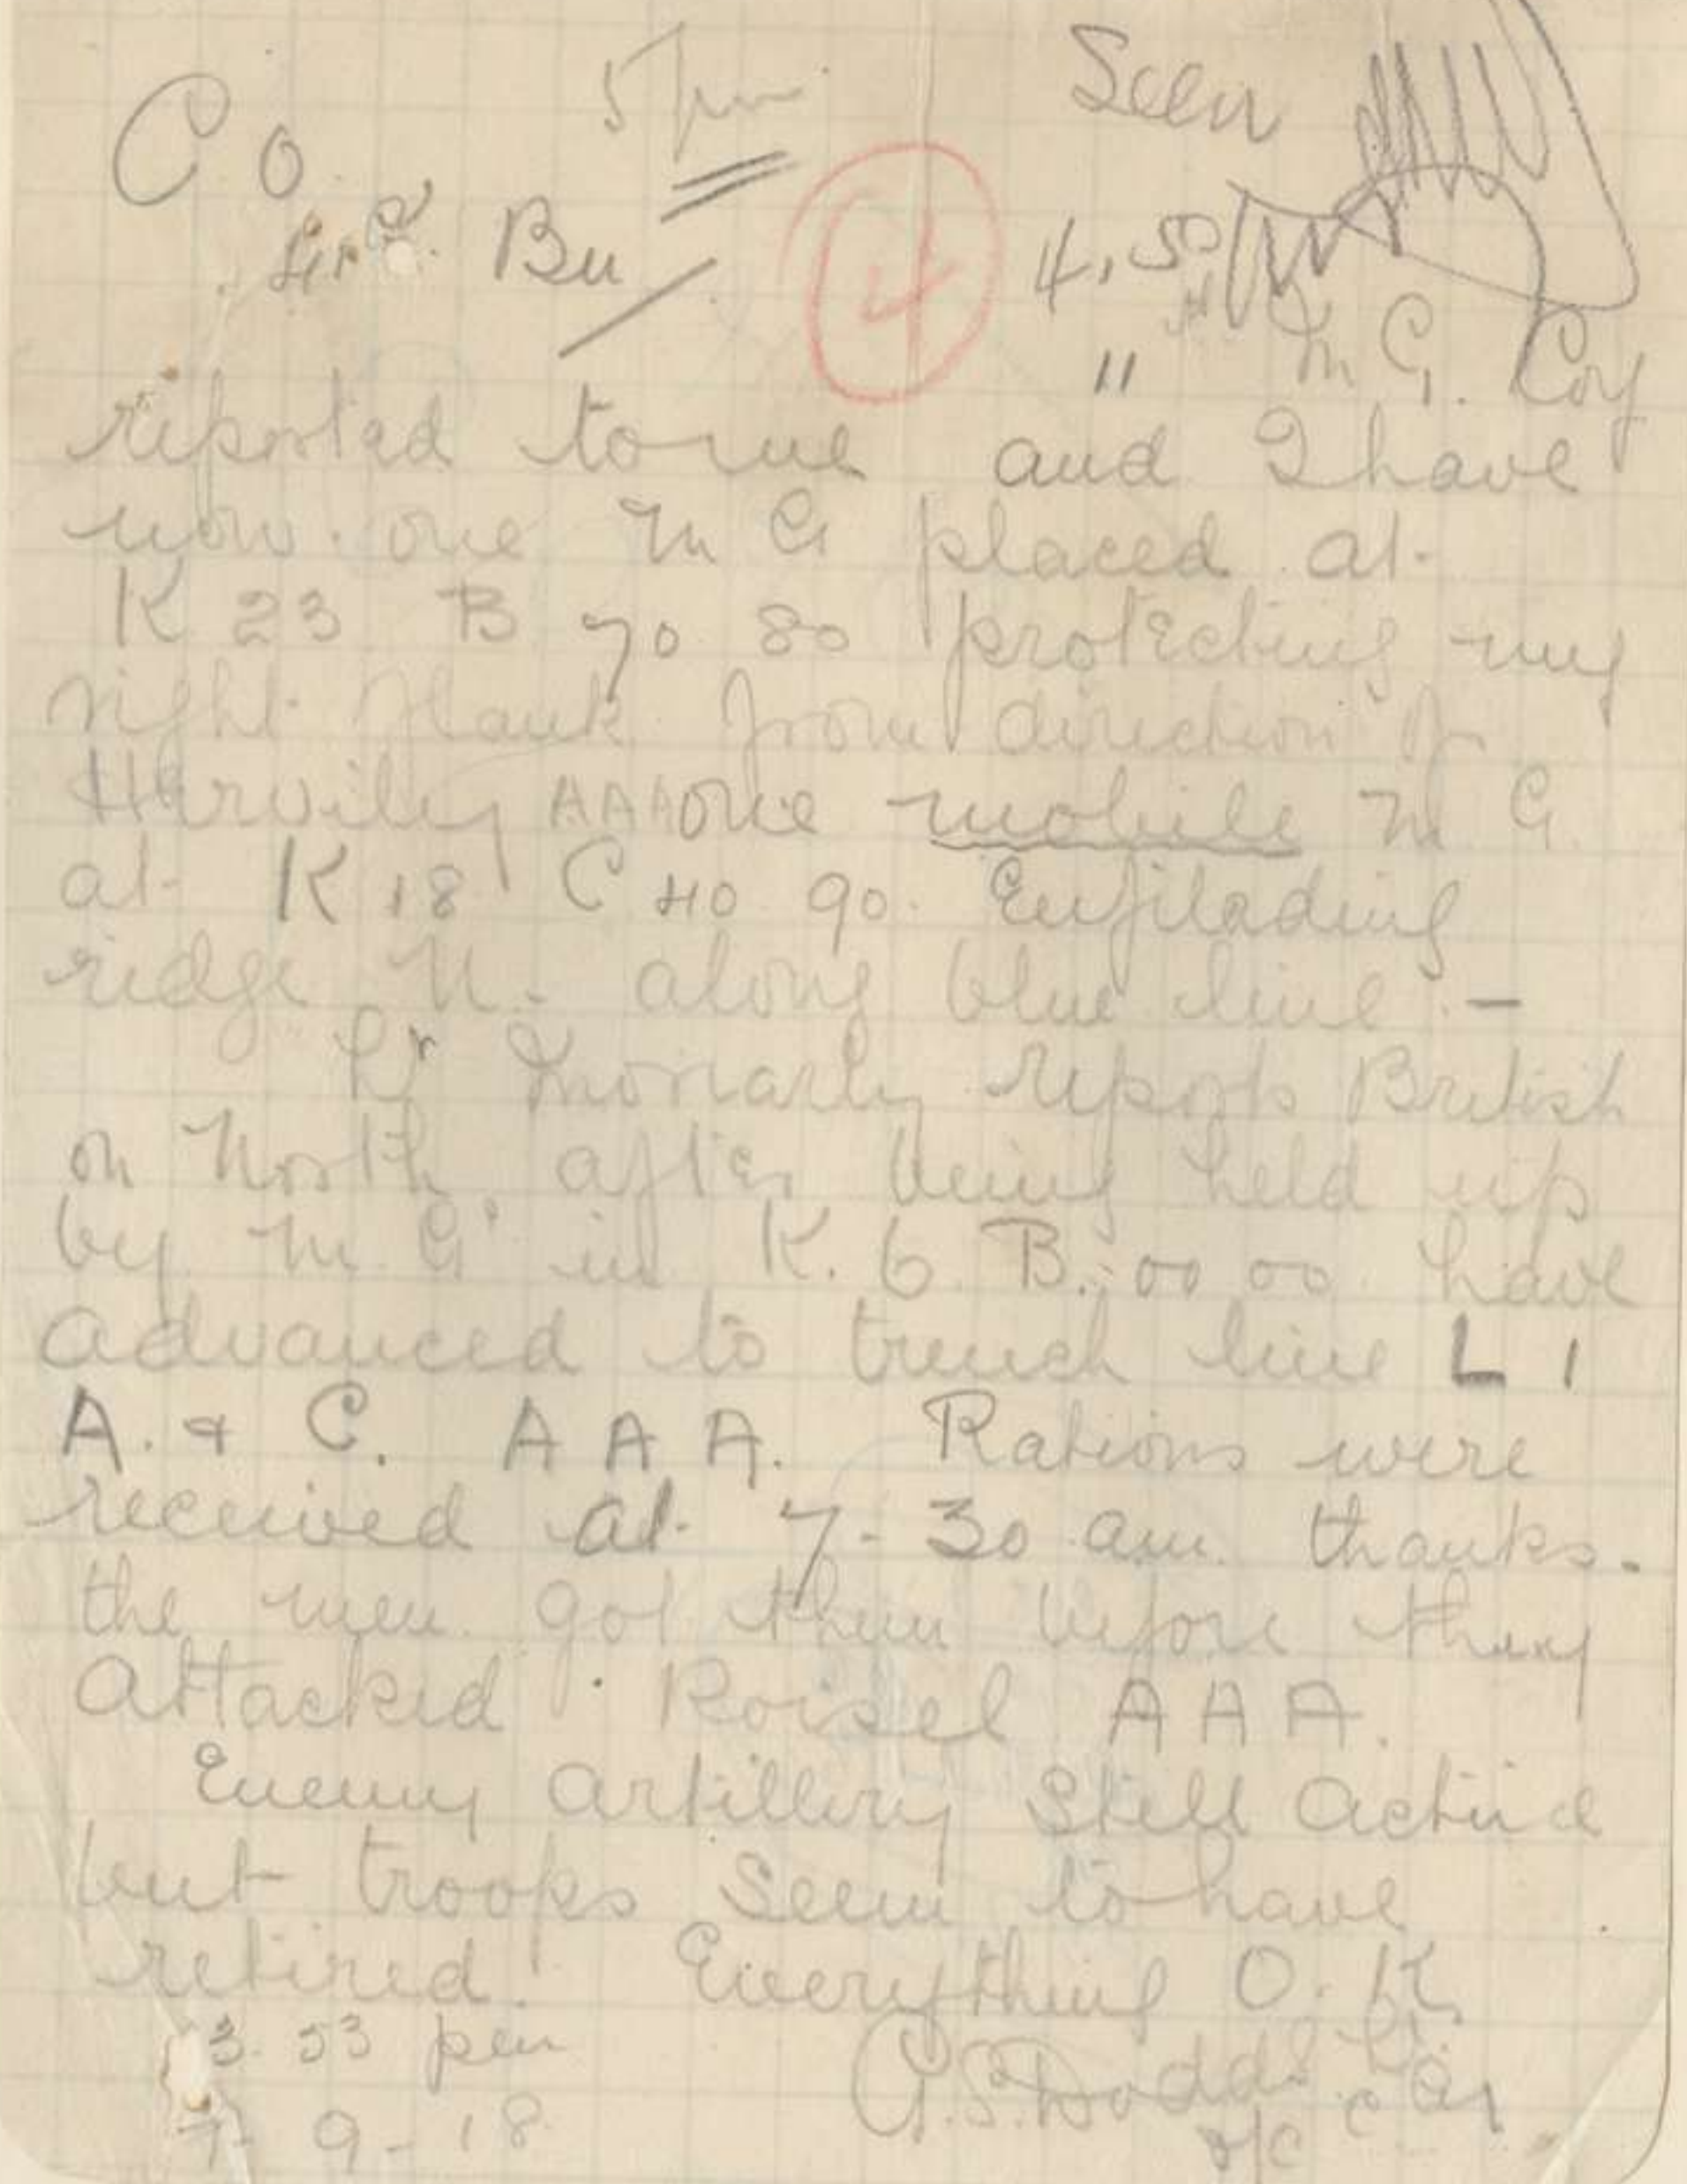 5 pm
Seen
C O
Bn
4
4.50
" M G. Coy
reported to me and I have
now one M G placed at
K 23 B 70 80 protecting my
right flank from direction of
Hervilly AAA one mobile M G
at K 18 C 40 90. Enfilading
ridge N. along blue line. -
Lt Moriarty reports British
on North, after being held up
by M G in K. 6 B. 00 00 have
advanced to trench line L 1
A. & C. A A A. Rations were
received at 7-30 am thanks.
the men got them before they
attacked Roisel A A A.
Enemy artillery still active
but troops seem to have
retired. Everything O. K.
3. 53 pm
A.S. Dodds Lt.
O/C C
7-9-18